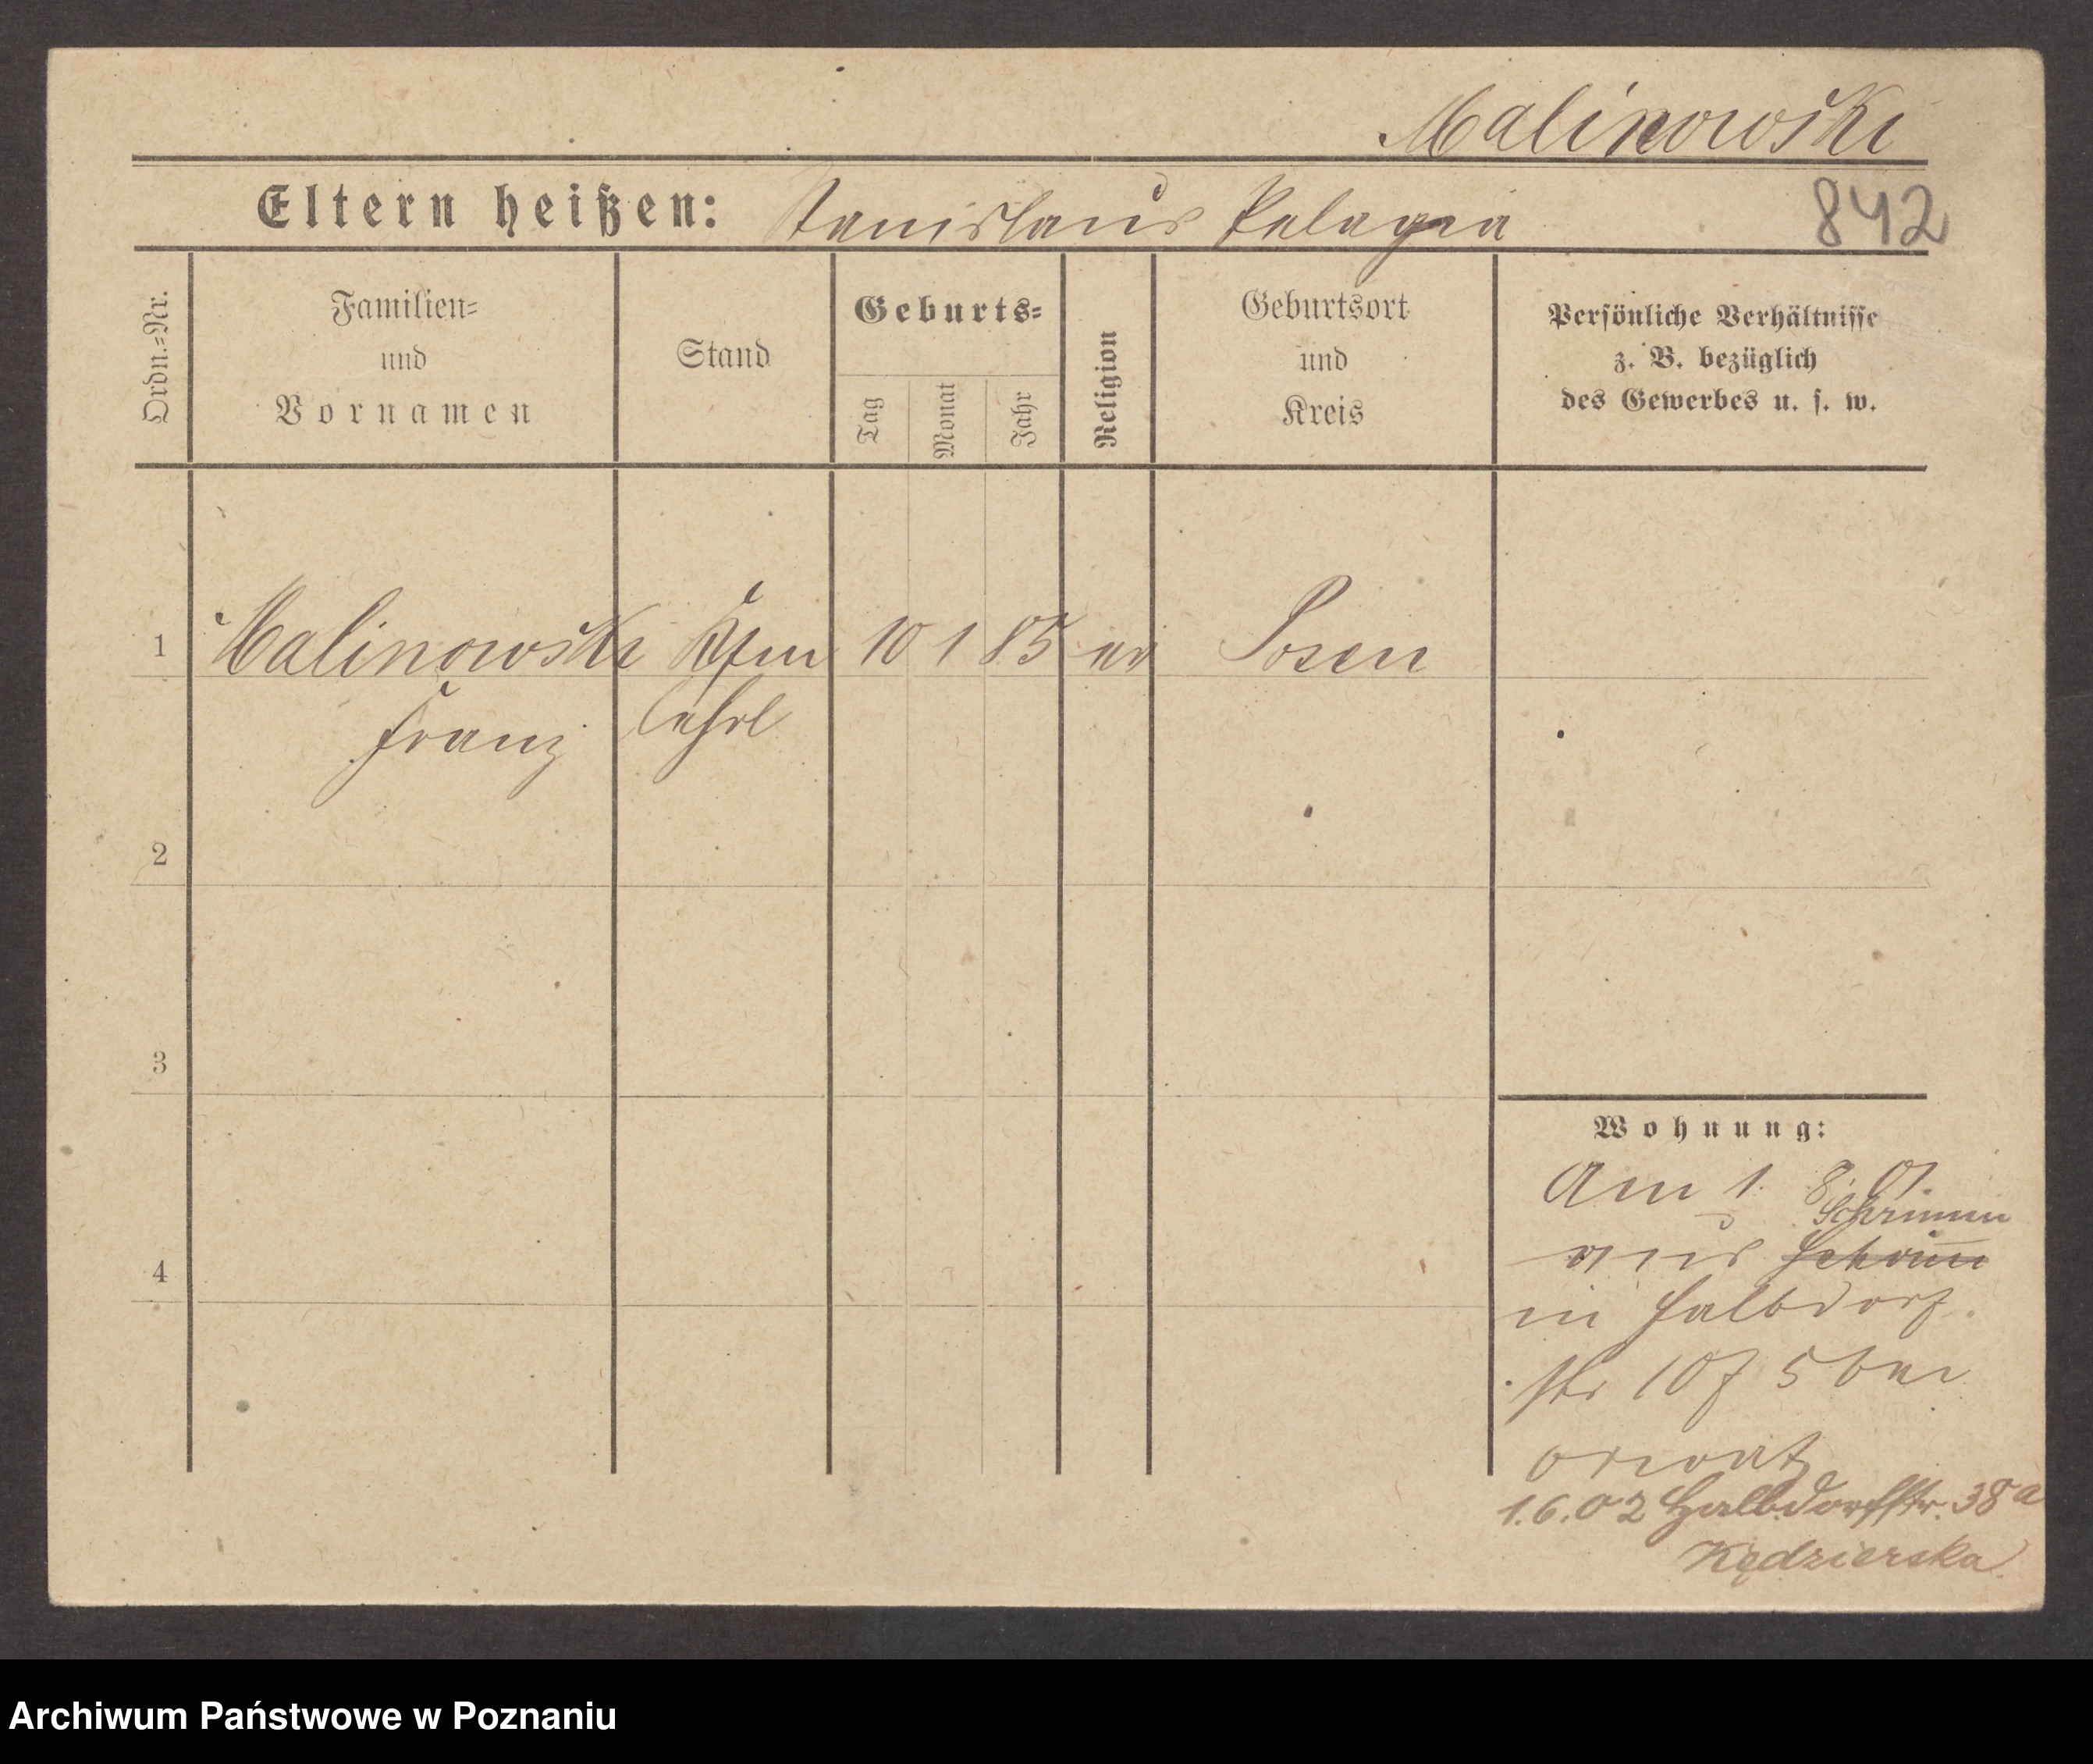 Malinowski
Eltern heißen: Stanislaus Pelagia
842
Ordn.-Nr.
Familien-
und
Vornamen
Stand
Geburts-
Tag
Monat
Jahr
Religion
Geburtsort
und
Kreis
Persönliche Verhältnisse
z. B. bezüglich
des Gewerbes u. s. w.
1 Malinowski Kfm 10 1 85 Posen
Franz Lehrl
2
3
4
Wohnung:
Am 1. 8. 01.
Schrimm
aus Schrimm
in Halbdorf
str 10 5 bei
1.6.02 Halbdorfstr. 38a
Kędzierska
Archiwum Państwowe w Poznaniu